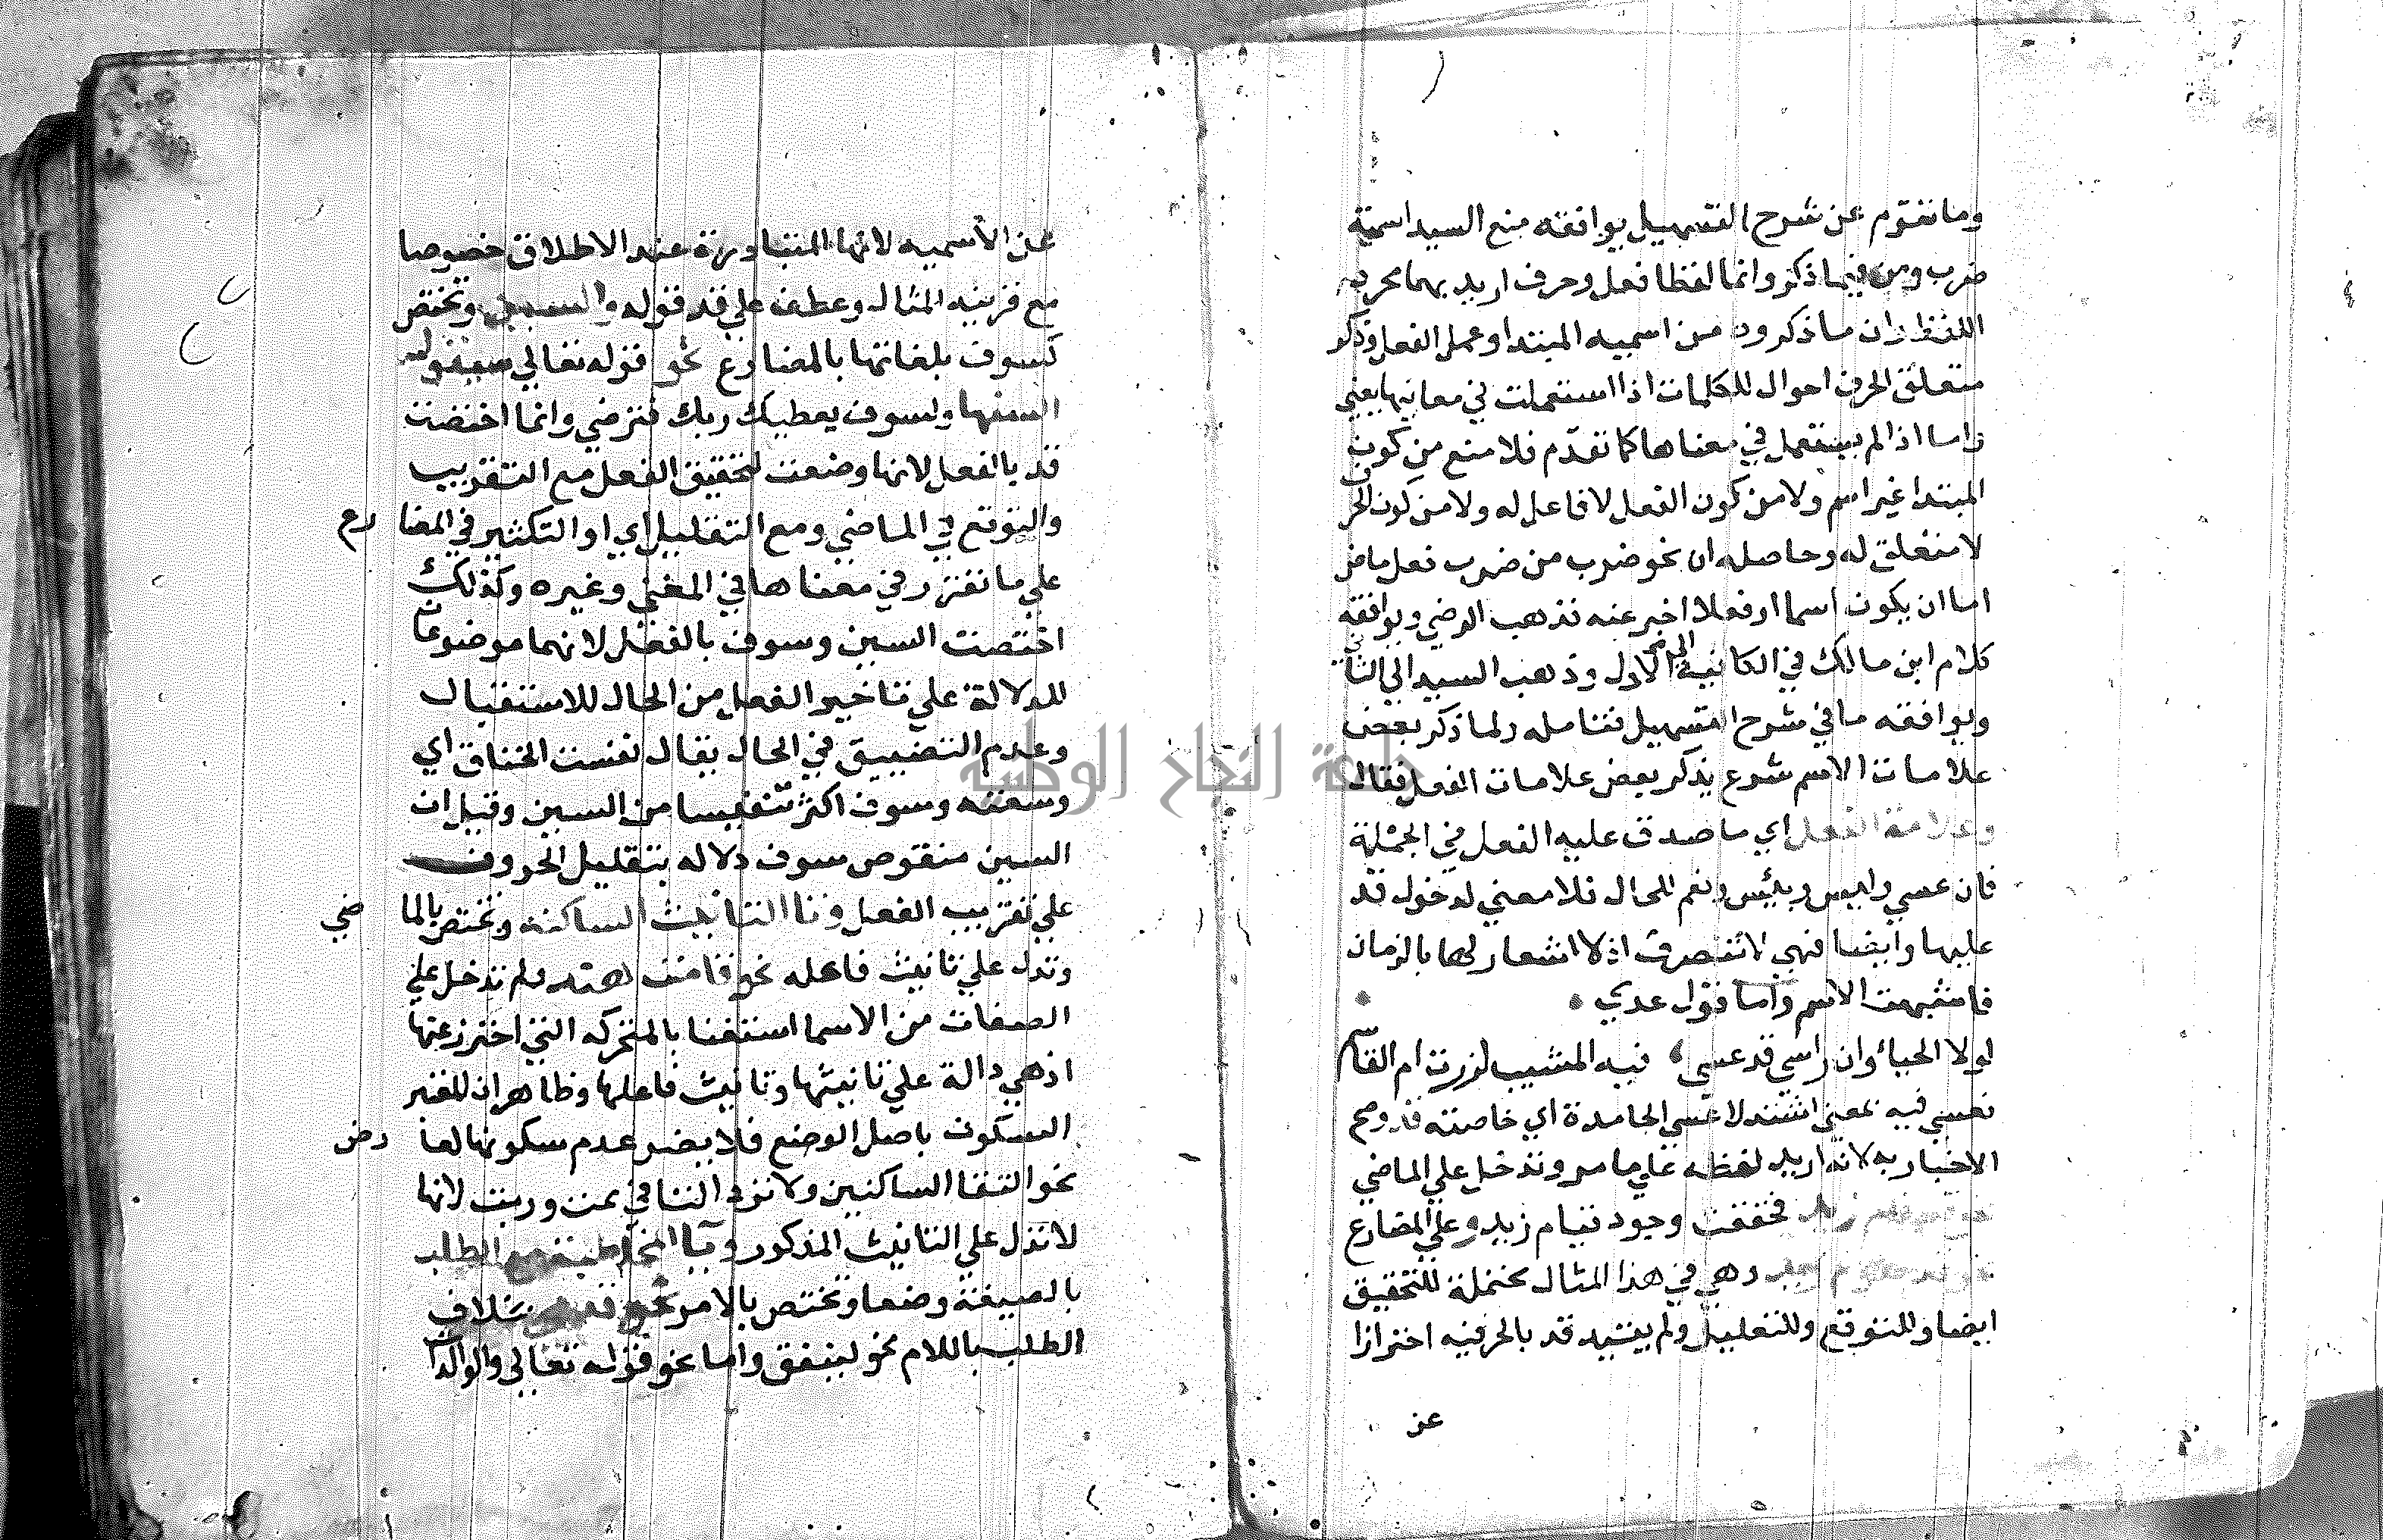 وما تقدم عن شرح التسهيل يوافقه منع السيد اسمية
ضرب ومن فيما ذكر وانما لفظا فعل وحرف اريد بهما مجرد
اللفظ وان ما ذكروه من اسميه المبتدا وعمل الفعل وذكر
متعلق الحرف احوال للكلمات اذا استعملت في معانيها يعني
واما اذا لم يستعمل في معناها كما تقدم فلا منع من كون
المبتدا غير اسم ولا من كون الفعل لا فاعل له ولا من كون الحرف
لا متعلق له وحاصله ان نحو ضرب من ضرب فعل ماض
اما ان يكون اسما او فعلا اخبر عنه فذهب الرضي ويوافقه
كلام ابن مالك في الكافية الى الاول وذهب السيد الي الثاني
ويوافقه ما في شرح التسهيل فتامله ولما ذكر بعض
علامات الاسم شرع يذكر بعض علامات الفعل فقال
وعلامة الفعل اي ما صدق عليه الفعل في الجملة
فان عسي وليس وبئس ونعم للحال فلا معني لدخول قد
عليها وايضا فهي لا تتصرف اذ لا اشعار لها بالزمان
فاشبهت الاسم واما قول عدي
لولا الحياء وان راسي قد عسي فيه المشيب لزرت ام القاسم
فعسي فيه بمعني اشتد لا عسي الجامدة اي خاصته قد وصح
الاخبار به لانه اريد لفظه علي ما مر وتدخل علي الماضي
نحو قد قام زيد فحققت وجود قيام زيد وعلي المضارع
نحو قد يقوم زيد وهي في هذا المثال محتملة للتحقيق
ايضا وللتوقع وللتقليل ولم يقيد قد بالحرفيه احترازا
عن
عن الاسميه لانها المتبادرة عند الاطلاق خصوصا
مع قرينه المثال وعطف علي قد قوله والسين وتختص
كسوف بلغاتها بالمضارع نحو قوله تعالي سيقول
السفها ولسوف يعطيك ربك فترضي وانما اختصت
قد بالفعل لانها وضعت لتحقيق الفعل مع التقريب
والتوقع في الماضي ومع التقليل اي او التكثير في المضارع
علي ما تقرر في معناها في المغني وغيره وكذلك
اختصت السين وسوف بالفعل لانهما موضوعتان
للدلالة علي تاخير الفعل من الحال للاستقبال
وعدم التضييق في الحال يقال نفست الخناق اي
وسعته وسوف اكثر تنفيسا من السين وقيل ان
السين منقوص سوف دلاله بتقليل الحروف
علي تقريب الفعل وتا التانيث الساكنة وتختص بالماضي
وتدل علي تانيث فاعله نحو قامت هند ولم تدخل علي
الصفات من الاسما استغنا بالمتحركه التي احترز عنها
اذ هي دالة علي تانيثها وتانيث فاعلها وظاهر ان المعتبر
السكون باصل الوضع فلا يضر عدم سكونها لعارض
نحو التقا الساكنين ولا ترد التا في ثمت وربت لانها
لا تدل علي التانيث المذكور ويا المخاطبة مع الطلب
بالصيغة وضعا وتختص بالامر نحو بخلاف
الطلب باللام نحو لينفق واما نحو قوله تعالي والوالدات
جامعة النجاح الوطنية